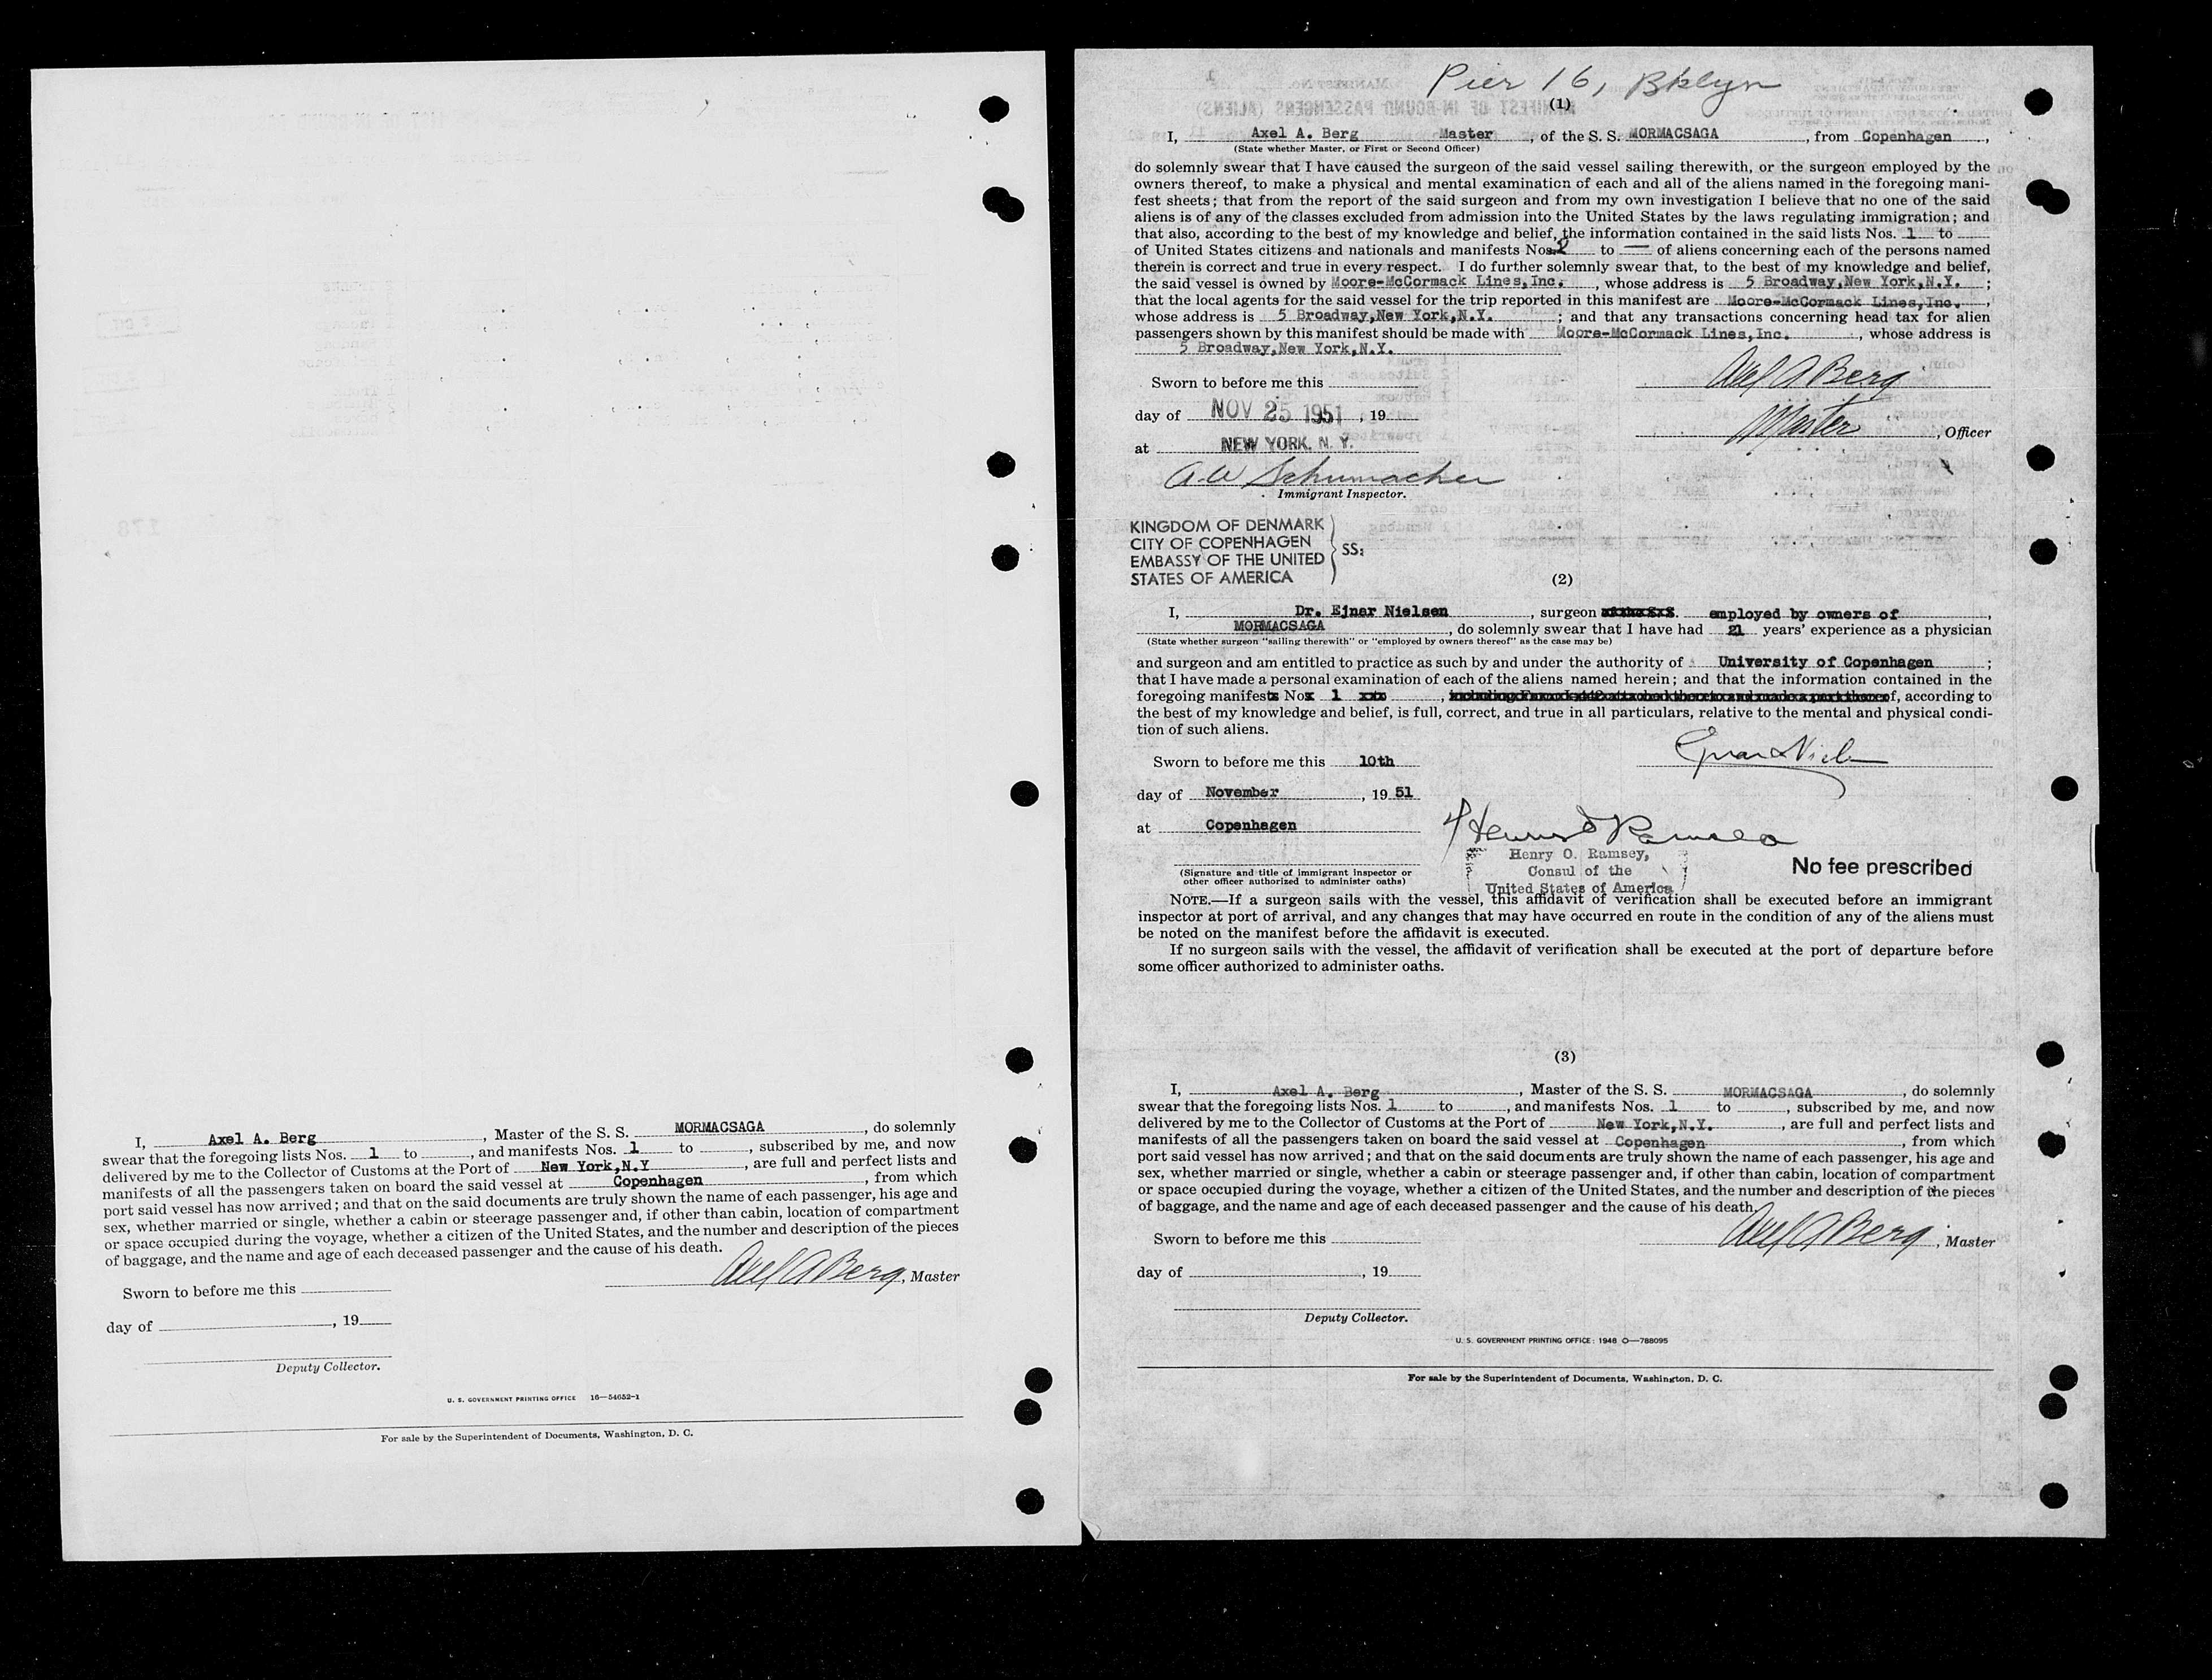 I, Axel A. Berg, Master of the S. S. MORMACSAGA, do solemnly
swear that the foregoing lists Nos. 1 to , and manifests Nos. 1 to , subscribed by me, and now
delivered by me to the Collector of Customs at the Port of New York,N.Y, are full and perfect lists and
manifests of all the passengers taken on board the said vessel at Copenhagen, from which
port said vessel has now arrived; and that on the said documents are truly shown the name of each passenger, his age and
sex, whether married or single, whether a cabin or steerage passenger and, if other than cabin, location of compartment
or space occupied during the voyage, whether a citizen of the United States, and the number and description of the pieces
of baggage, and the name and age of each deceased passenger and the cause of his death.
Axel A Berg, Master
Sworn to before me this
day of , 19
Deputy Collector.
U. S. GOVERNMENT PRINTING OFFICE 16—54652-1
For sale by the Superintendent of Documents, Washington, D. C.
Pier 16, Bklyn
(1)
I, Axel A. Berg Master, of the S. S. MORMACSAGA, from Copenhagen,
(State whether Master, or First or Second Officer)
do solemnly swear that I have caused the surgeon of the said vessel sailing therewith, or the surgeon employed by the
owners thereof, to make a physical and mental examination of each and all of the aliens named in the foregoing mani-
fest sheets; that from the report of the said surgeon and from my own investigation I believe that no one of the said
aliens is of any of the classes excluded from admission into the United States by the laws regulating immigration; and
that also, according to the best of my knowledge and belief, the information contained in the said lists Nos. 1 to
of United States citizens and nationals and manifests Nos. 2 to — of aliens concerning each of the persons named
therein is correct and true in every respect. I do further solemnly swear that, to the best of my knowledge and belief,
the said vessel is owned by Moore-McCormack Lines,Inc., whose address is 5 Broadway,New York,N.Y.;
that the local agents for the said vessel for the trip reported in this manifest are Moore-McCormack Lines,Inc.,
whose address is 5 Broadway,New York,N.Y.; and that any transactions concerning head tax for alien
passengers shown by this manifest should be made with Moore-McCormack Lines,Inc., whose address is
5 Broadway,New York,N.Y.
Axel A Berg
Sworn to before me this
day of NOV 25 1951, 19
Master, Officer
at NEW YORK, N. Y.
A.W Schumacher
Immigrant Inspector.
KINGDOM OF DENMARK
CITY OF COPENHAGEN
EMBASSY OF THE UNITED
STATES OF AMERICA
SS:
(2)
I, Dr. Ejnar Nielsen, surgeon employed by owners of,
MORMACSAGA, do solemnly swear that I have had 21 years' experience as a physician
(State whether surgeon "sailing therewith" or "employed by owners thereof" as the case may be)
and surgeon and am entitled to practice as such by and under the authority of University of Copenhagen;
that I have made a personal examination of each of the aliens named herein; and that the information contained in the
foregoing manifest No 1 , according to
the best of my knowledge and belief, is full, correct, and true in all particulars, relative to the mental and physical condi-
tion of such aliens.
Ejnar Nielsen
Sworn to before me this 10th
day of November, 19 51
at Copenhagen
Henry O Ramsey
Henry O. Ramsey,
Consul of the
United States of America
No fee prescribed
(Signature and title of immigrant inspector or
other officer authorized to administer oaths)
NOTE.—If a surgeon sails with the vessel, this affidavit of verification shall be executed before an immigrant
inspector at port of arrival, and any changes that may have occurred en route in the condition of any of the aliens must
be noted on the manifest before the affidavit is executed.
If no surgeon sails with the vessel, the affidavit of verification shall be executed at the port of departure before
some officer authorized to administer oaths.
(3)
I, Axel A. Berg, Master of the S. S. MORMACSAGA, do solemnly
swear that the foregoing lists Nos. 1 to , and manifests Nos. 1 to , subscribed by me, and now
delivered by me to the Collector of Customs at the Port of New York,N.Y., are full and perfect lists and
manifests of all the passengers taken on board the said vessel at Copenhagen, from which
port said vessel has now arrived; and that on the said documents are truly shown the name of each passenger, his age and
sex, whether married or single, whether a cabin or steerage passenger and, if other than cabin, location of compartment
or space occupied during the voyage, whether a citizen of the United States, and the number and description of the pieces
of baggage, and the name and age of each deceased passenger and the cause of his death.
Axel A Berg, Master
Sworn to before me this
day of , 19
Deputy Collector.
U. S. GOVERNMENT PRINTING OFFICE: 1948 O—788095
For sale by the Superintendent of Documents, Washington, D. C.